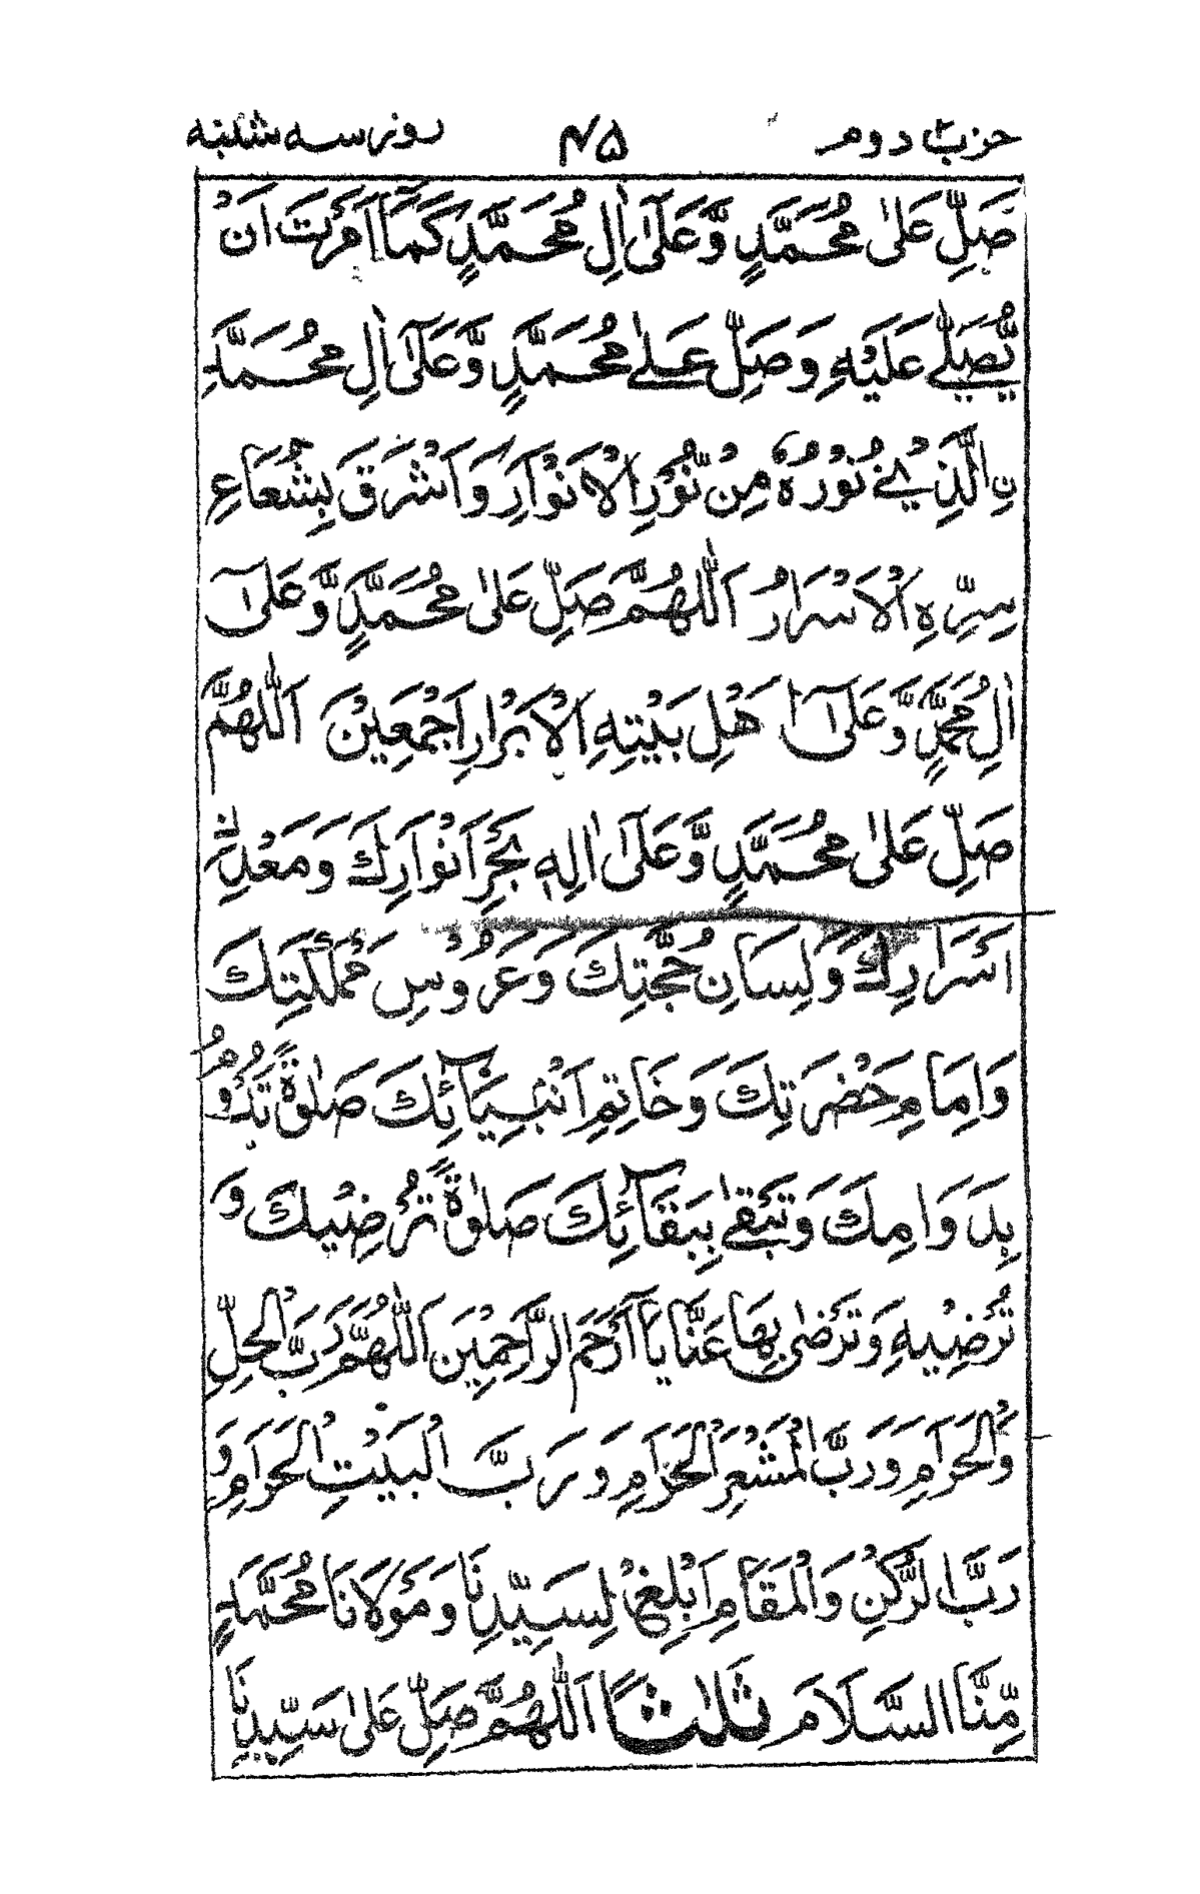 حزب دوم ۴۵ روز سه شنبه
صَلِّ عَلٰى مُحَمَّدٍ وَّعَلٰٓى اٰلِ مُحَمَّدٍ كَمَآ اَمَرْتَ اَنْ
يُّصَلّٰى عَلَيْهِ وَصَلِّ عَلٰى مُحَمَّدٍ وَّعَلٰٓى اٰلِ مُحَمَّدِ
نِ الَّذِيْ نُوْرُهٗ مِنْ نُّوْرِ الْاَنْوَارِ وَاَشْرَقَ بِشُعَاعِ
سِرِّهِ الْاَسْرَارُ اَللّٰهُمَّ صَلِّ عَلٰى مُحَمَّدٍ وَّعَلٰٓى
اٰلِ مُحَمَّدٍ وَّعَلٰٓى اَهْلِ بَيْتِهِ الْاَبْرَارِ اَجْمَعِيْنَ اَللّٰهُمَّ
صَلِّ عَلٰى مُحَمَّدٍ وَّعَلٰٓى اٰلِهٖ بَحْرِ اَنْوَارِكَ وَمَعْدِنِ
اَسْرَارِكَ وَلِسَانِ حُجَّتِكَ وَعَرُوْسِ مَمْلَكَتِكَ
وَاِمَامِ حَضْرَتِكَ وَخَاتِمِ اَنْبِيَآئِكَ صَلٰوةً تَدُوْمُ
بِدَوَامِكَ وَتَبْقٰى بِبَقَآئِكَ صَلٰوةً تُرْضِيْكَ وَ
تُرْضِيْهِ وَتَرْضٰى بِهَا عَنَّا يَآ اَرْحَمَ الرَّاحِمِيْنَ اَللّٰهُمَّ رَبَّ الْحِلِّ
وَالْحَرَامِ وَرَبَّ الْمَشْعَرِ الْحَرَامِ وَرَبَّ الْبَيْتِ الْحَرَامِ وَ
رَبَّ الرُّكْنِ وَالْمَقَامِ اَبْلِغْ لِسَيِّدِنَا وَمَوْلَانَا مُحَمَّدٍ
مِّنَّا السَّلَامَ ثَلٰثًا اَللّٰهُمَّ صَلِّ عَلٰى سَيِّدِنَا